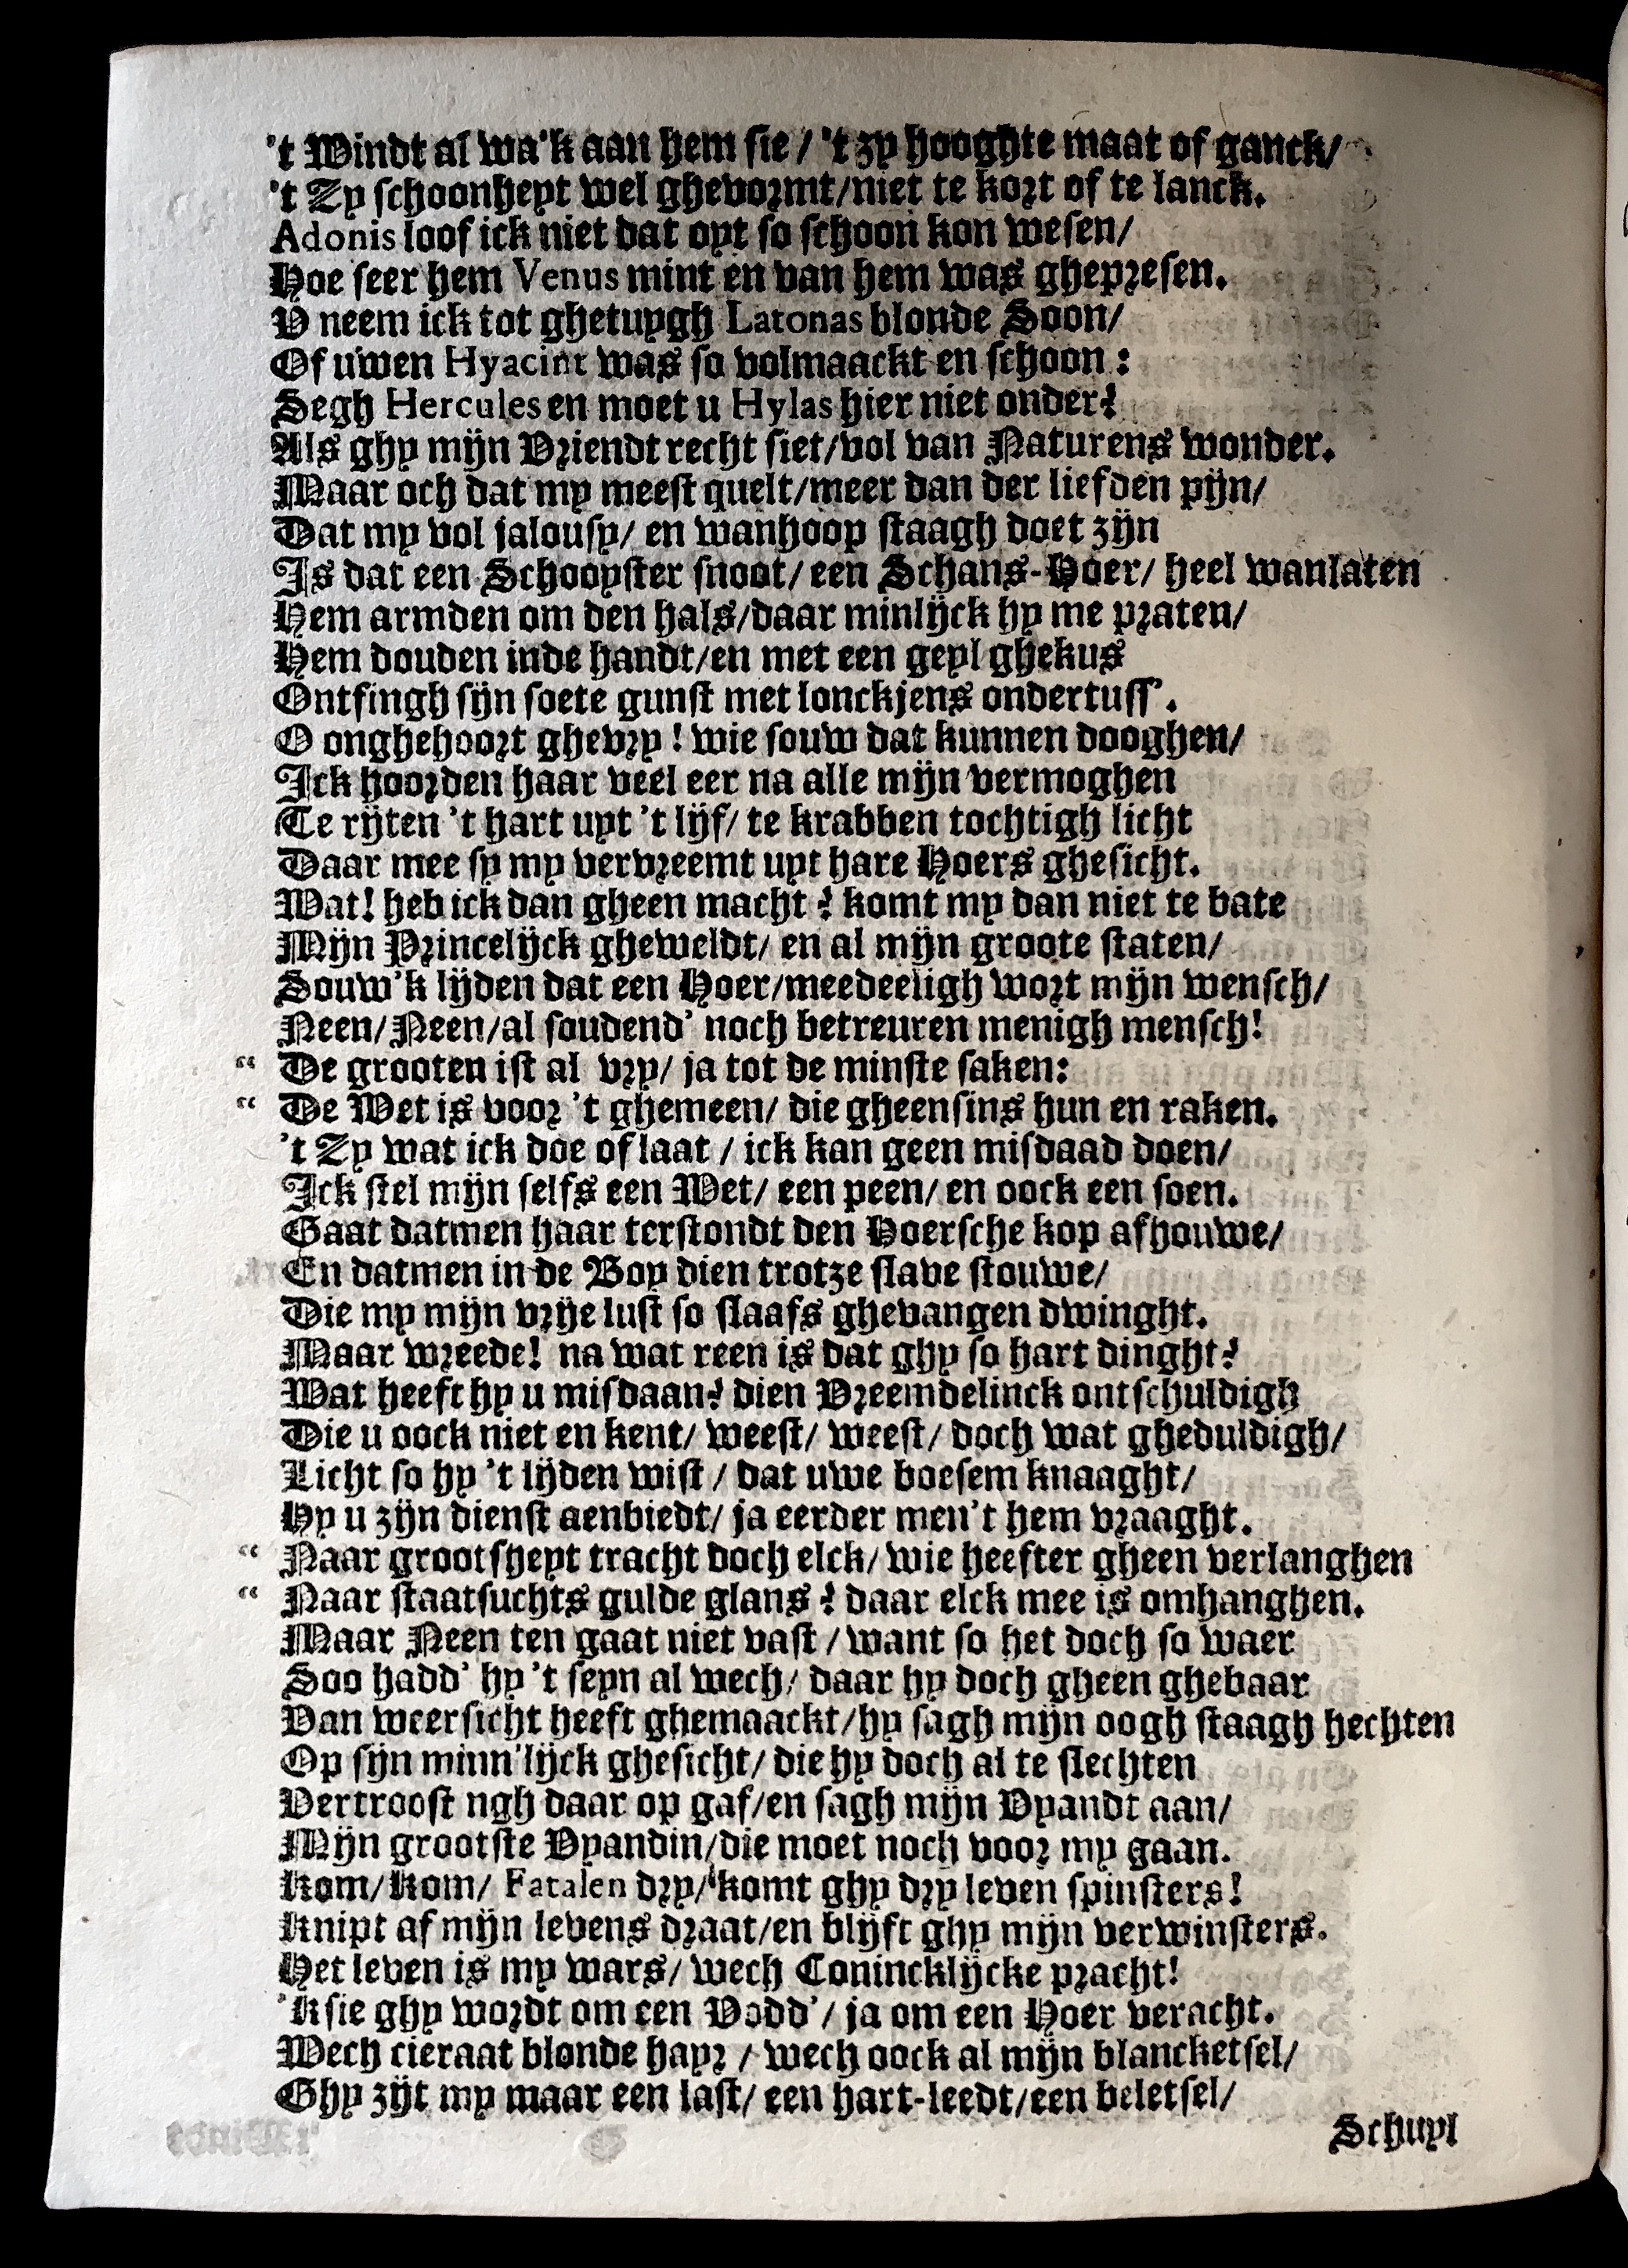 't Windt al wa'k aan hem sie / 't zy hooghte maat of ganck/
't Zy schoonheyt wel ghevormt/niet te kort of te lanck.
Adonis loof ick niet dat oyt so schoon kon wesen/
Hoe seer hem Venus mint en van hem was ghepresen.
V neem ick tot ghetuygh Latonas blonde Soon/
Of uwen Hyacint was so volmaackt en schoon:
Segh Hercules en moet u Hylas hier niet onder?
Als ghy mijn Vriendt recht siet/vol van Naturens wonder.
Maar och dat my meest quelt/meer dan der liefden pijn/
Dat my vol jalousy/ en wanhoop staagh doet zijn
Is dat een Schooyster snoot/ een Schans-Hoer/ heel wanlaten
Hem armden om den hals/daar minlijck hy me praten/
Hem douden inde handt/en met een geyl ghekus
Ontfingh sijn soete gunst met lonckjens ondertuss'.
O onghehoort ghevry! wie souw dat kunnen dooghen/
Ick hoorden haar veel eer na alle mijn vermoghen
Te rijten 't hart uyt 't lijf/ te krabben tochtigh licht
Daar mee sy my vervreemt uyt hare Hoers ghesicht.
Wat! heb ick dan gheen macht? komt my dan niet te bate
Mijn Princelijck gheweldt/ en al mijn groote staten/
Souw'k lijden dat een Hoer/meedeeligh wort mijn wensch/
Neen/Neen/al soudend' noch betreuren menigh mensch!
“ De grooten ist al vry/ ja tot de minste saken:
“ De Wet is voor 't ghemeen/ die gheensins hun en raken.
't Zy wat ick doe of laat / ick kan geen misdaad doen/
Ick stel mijn selfs een Wet/ een peen/ en oock een soen.
Gaat datmen haar terstondt den Hoersche kop afhouwe/
En datmen in de Boy dien trotze slave stouwe/
Die my mijn vrije lust so slaafs ghevangen dwinght.
Maar wreede! na wat reen is dat ghy so hart dinght?
Wat heeft hy u misdaan? dien Vreemdelinck ontschuldigh
Die u oock niet en kent/ weest/ weest/ doch wat gheduldigh/
Licht so hy 't lijden wist / dat uwe boesem knaaght/
Hy u zijn dienst aenbiedt/ ja eerder men't hem vraaght.
“ Naar grootsheyt tracht doch elck/ wie heefter gheen verlanghen
“ Naar staatsuchts gulde glans? daar elck mee is omhanghen.
Maar Neen ten gaat niet vast / want so het doch so waer
Soo hadd' hy 't seyn al wech/ daar hy doch gheen ghebaar
Van weersicht heeft ghemaackt/hy sagh mijn oogh staagh hechten
Op sijn minn'lijck ghesicht/ die hy doch al te slechten
Vertroost ngh daar op gaf/en sagh mijn Vyandt aan/
Mijn grootste Vyandin/die moet noch voor my gaan.
Kom/Kom/ Fatalen dry/ komt ghy dry leven spinsters!
Knipt af mijn levens draat/en blijft ghy mijn verwinsters.
Het leven is my wars/ wech Conincklijcke pracht!
'K sie ghy wordt om een Vodd'/ ja om een Hoer veracht.
Wech cieraat blonde hayr / wech oock al mijn blancketsel/
Ghy zijt my maar een last/ een hart-leedt/een beletsel/
Schuyl